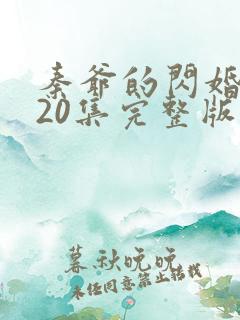 秦爷的閃婚
20集完整版
暮秋晚晚
未经同意禁止转载